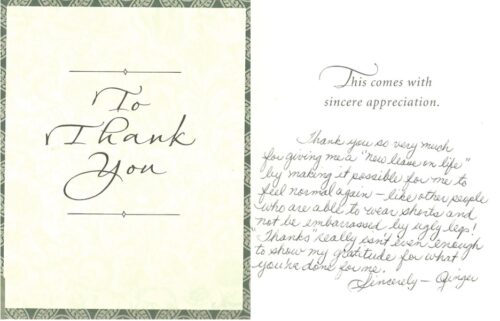 To
Thank
You
This comes with
sincere appreciation.
Thank you so very much
for giving me a "new lease on life"
by making it possible for me to
feel normal again – like other people
who are able to wear shorts and
not be embarrassed by ugly legs!
"Thanks" really isn't even enough
to show my gratitude for what
you've done for me.
Sincerely – Ginger